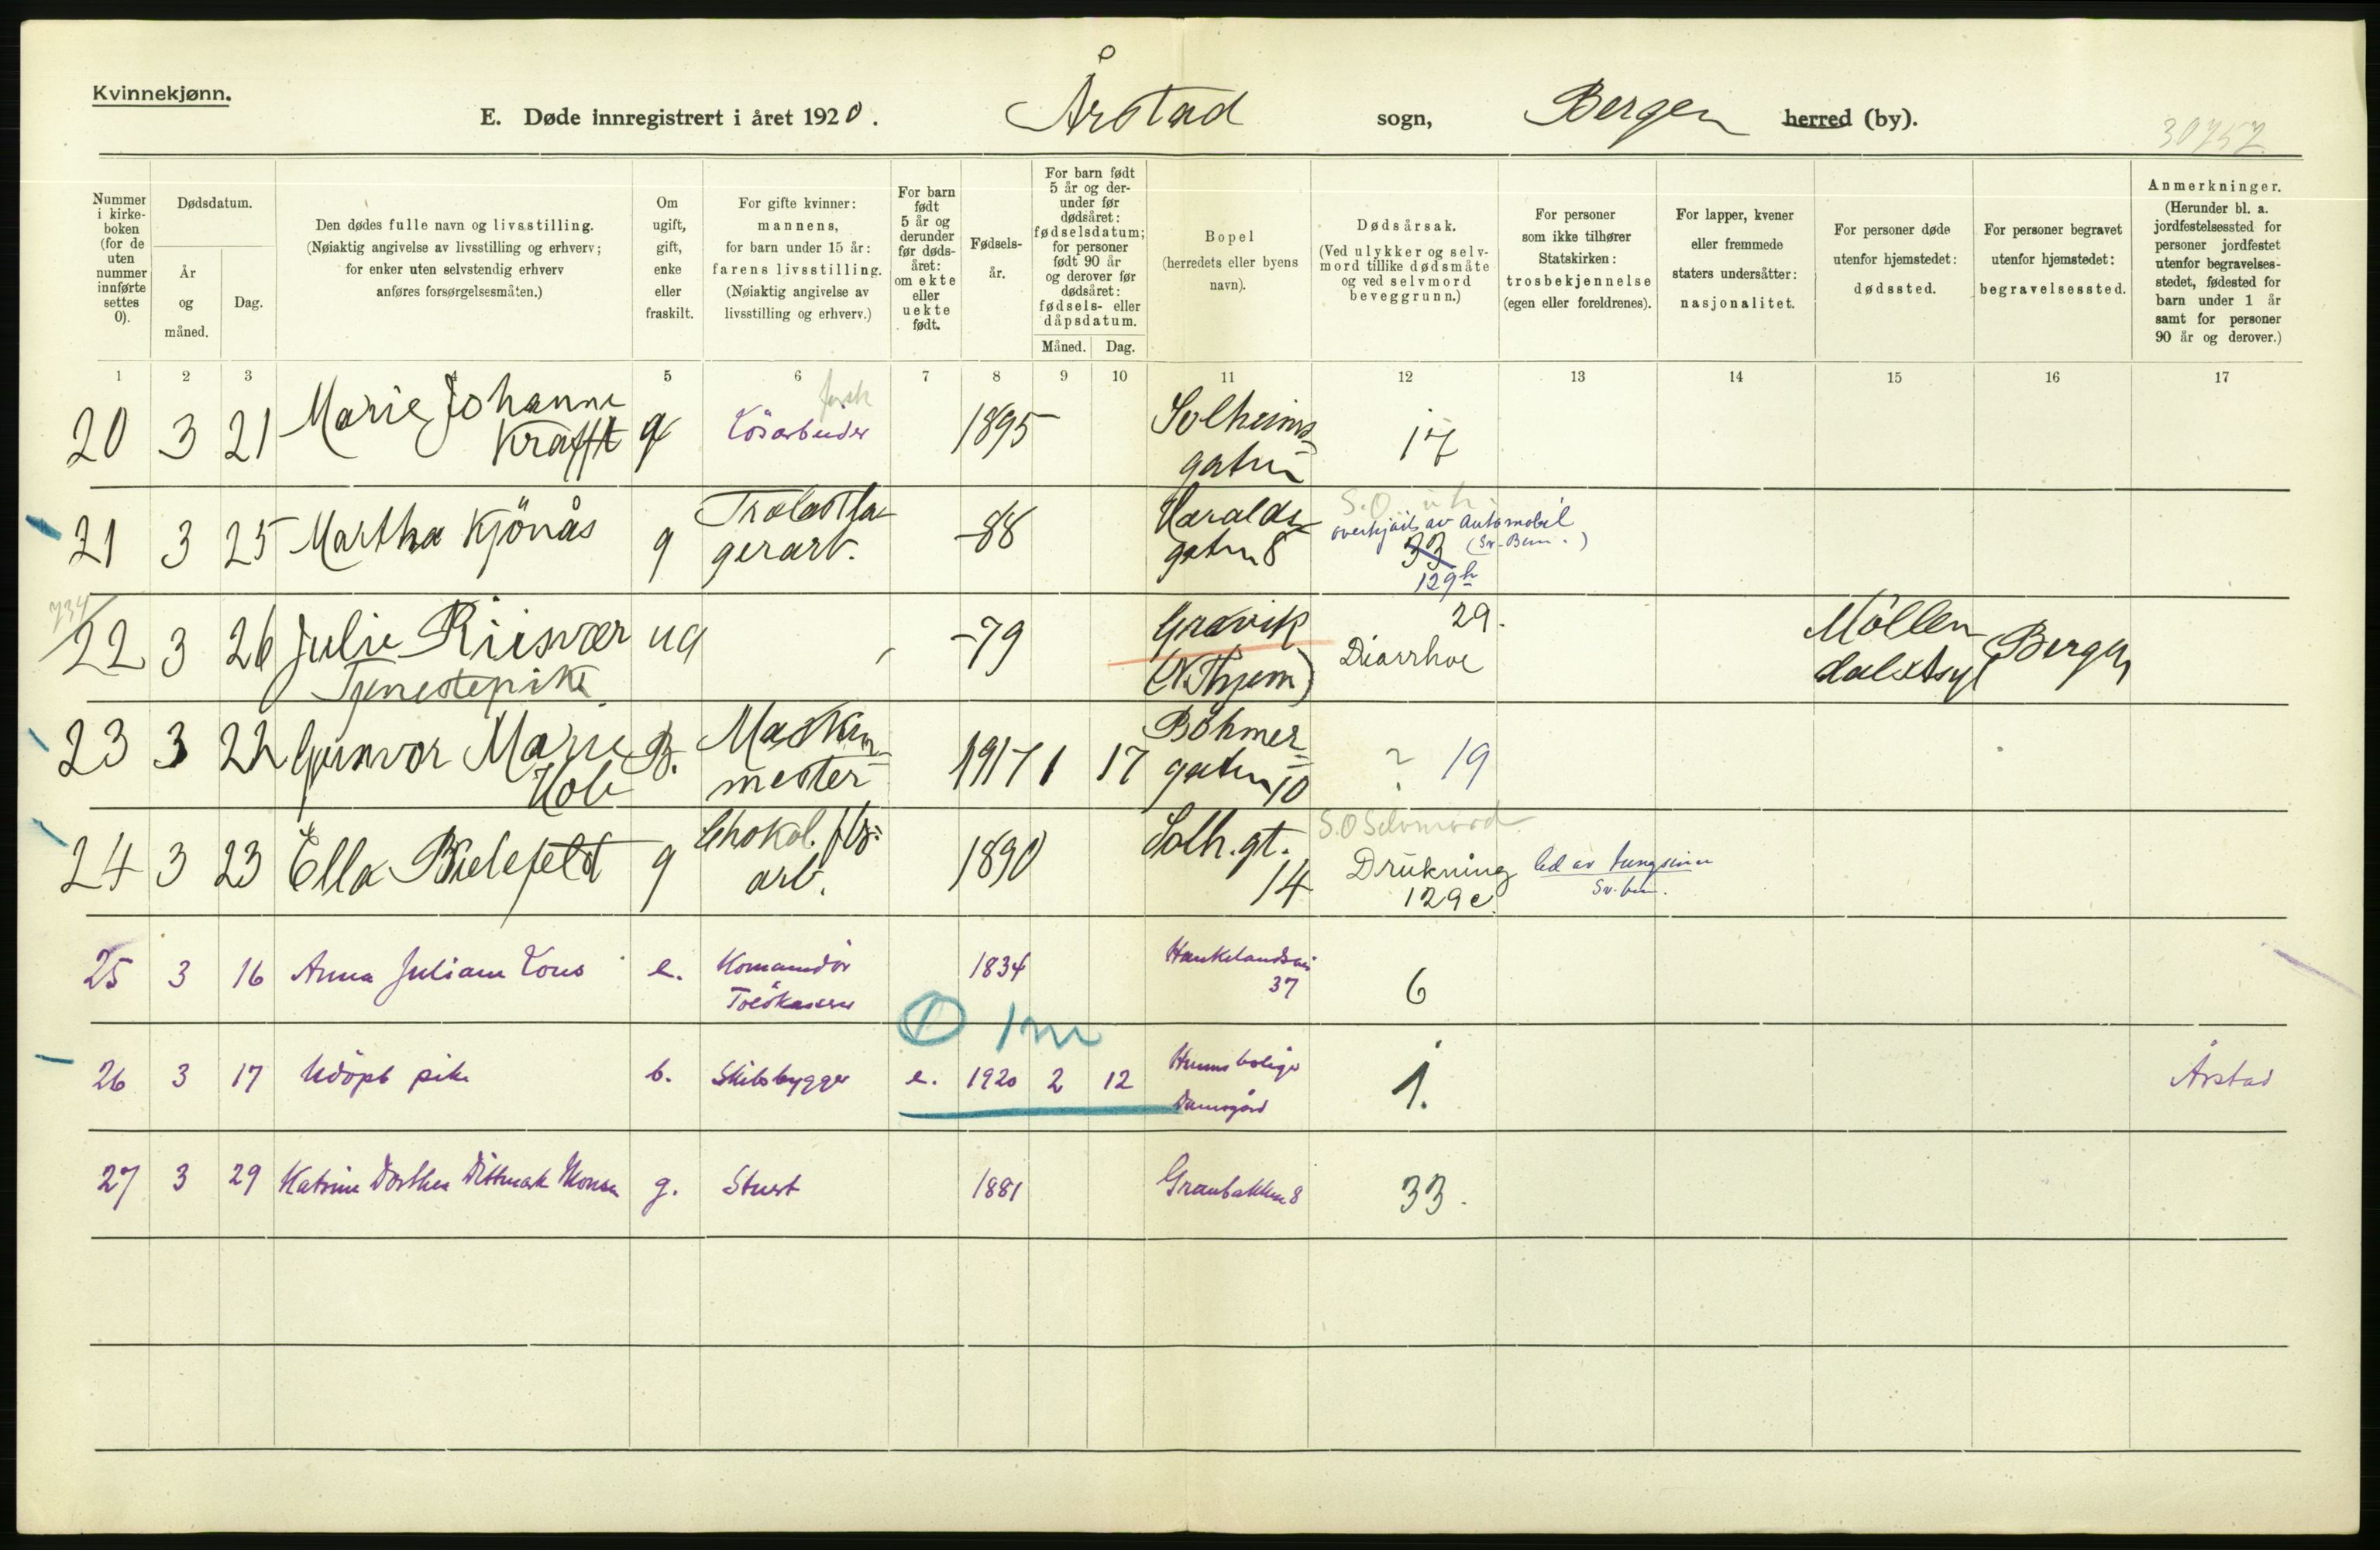 Kvinnekjønn.
E. Døde innregistrert i året 1920. Årstad sogn, Bergen herred (by).
30757
Nummer i kirke-boken (for de uten nummer innførte settes 0).
Dødsdatum.
År og måned.
Dag.
Den dødes fulle navn og livsstilling.
(Nøiaktig angivelse av livsstilling og erhverv;
for enker uten selvstendig erhverv
anføres forsørgelsesmåten.)
Om ugift, gift, enke eller fraskilt.
For gifte kvinner:
mannens,
for barn under 15 år:
farens livsstilling.
(Nøiaktig angivelse av
livsstilling og erhverv.)
For barn født 5 år og derunder før døds-året: om ekte eller uekte født.
Fødsels-år.
For barn født 5 år og der-under før dødsåret: fødselsdatum; for personer født 90 år og derover før dødsåret: fødsels- eller dåpsdatum.
Måned. Dag.
Bopel
(herredets eller byens
navn).
Dødsårsak.
(Ved ulykker og selv-
mord tillike dødsmåte
og ved selvmord
beveggrunn.)
For personer
som ikke tilhører
Statskirken:
trosbekjennelse
(egen eller foreldrenes).
For lapper, kvener
eller fremmede
staters undersåtter:
nasjonalitet.
For personer døde
utenfor hjemstedet:
dødssted.
For personer begravet
utenfor hjemstedet:
begravelsessted.
Anmerkninger.
(Herunder bl. a.
jordfestelsessted for
personer jordfestet
utenfor begravelses-
stedet, fødested for
barn under 1 år
samt for personer
90 år og derover.)
1 2 3 4 5 6 7 8 9 10 11 12 13 14 15 16 17
20 3 21 Marie Johanne Krafft g Lösarbeider 1895 Solheims-gaten 17
21 3 25 Martha Kjönås g gerarb. -88 Haralds-gaten 8 S.O. overkjört av automobil 33 129h
734
22 3 26 Julie Riisnær Tjenestepike ug -79 Gravik 29. Diarrhoe Möllendalsasyl Bergen
23 3 22 Gunvor Marie Hole B. Maskinmester 1917 1 17 Böhmer-gaten 10 ? 19
24 3 23 Ella Bielefeldt g Chokol. arb. 1890 Solh. gt. 14 S.O Selvmord Drukning led av tungsinn 129e
25 3 16 Anna Juliane Lous e. Komandör Toldkasserer 1834 Haukelandsvei 37 6
1 m
26 3 17 Udöpt pike b. Skibsbygger e. 1920 2 12 Damsgård 1. Årstad
27 3 29 Katrine Dorthea Dittmark Monsen g. Stuert 1881 Granbakken 8 33.